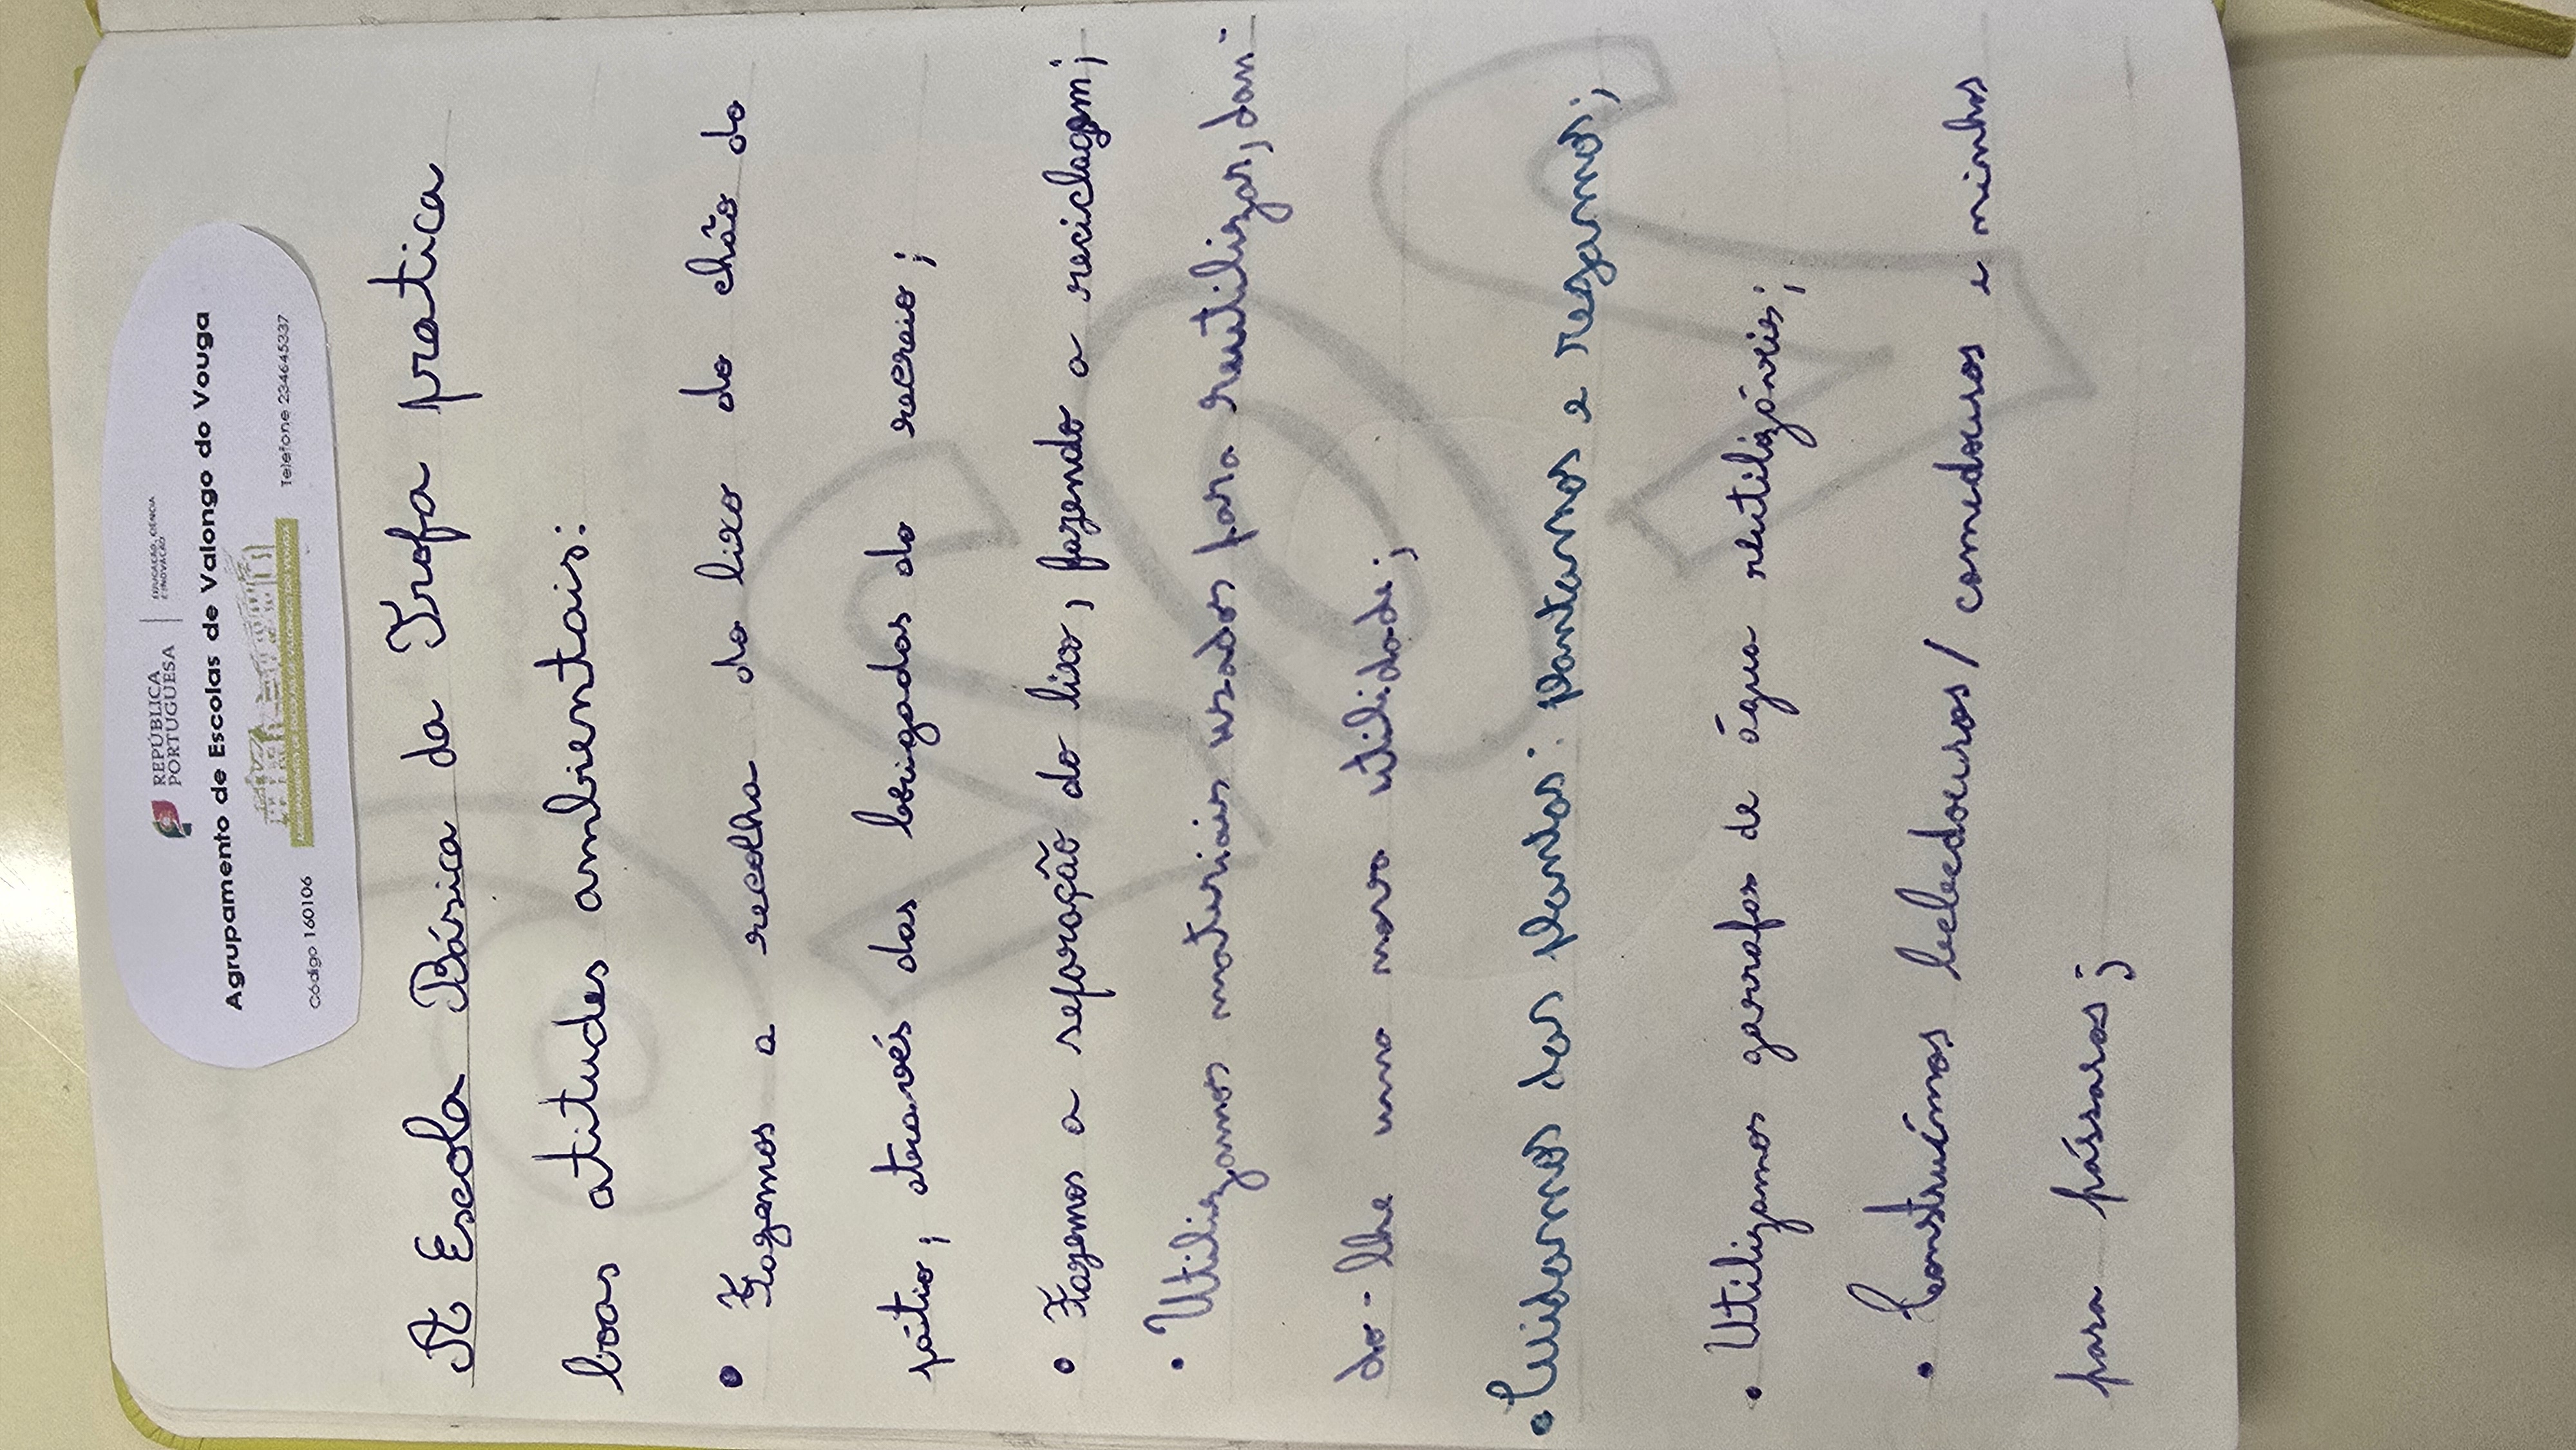 REPÚBLICA
PORTUGUESA
EDUCAÇÃO, CIÊNCIA
E INOVAÇÃO
Agrupamento de Escolas de Valongo do Vouga
AGRUPAMENTO DE ESCOLAS DE VALONGO DO VOUGA
Código 160106 Telefone 234645337
A Escola Básica da Trofa pratica
boas atitudes ambientais:
• Fazemos a recolha do lixo do chão do
pátio, através das brigadas do recreio;
• Fazemos a separação do lixo, fazendo a reciclagem;
• Utilizamos materiais usados para reutilizar, dan-
do-lhe uma nova utilidade;
• Cuidamos das plantas: plantamos e regamos;
• Utilizamos garrafas de água reutilizáveis;
• Construímos bebedouros/comedouros e ninhos
para pássaros;